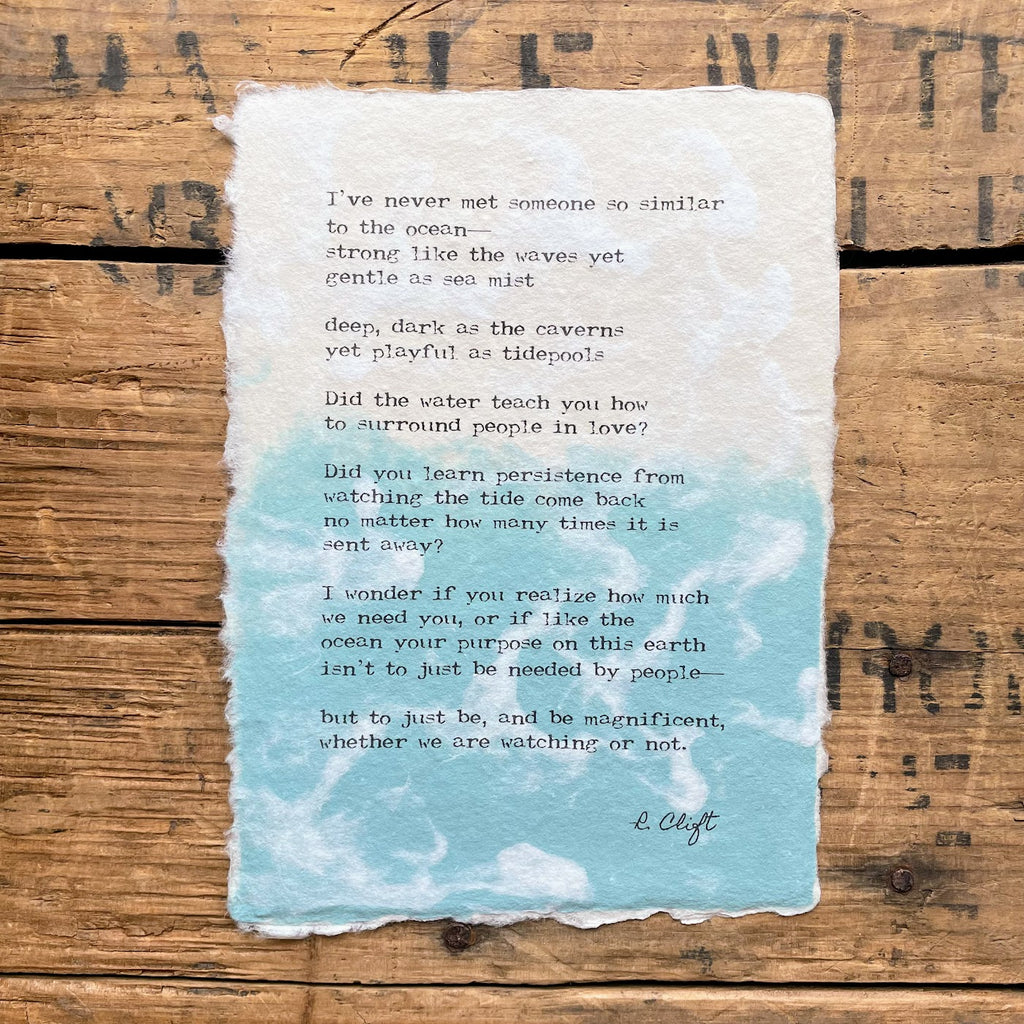 I've never met someone so similar
to the ocean—
strong like the waves yet
gentle as sea mist
deep, dark as the caverns
yet playful as tidepools
Did the water teach you how
to surround people in love?
Did you learn persistence from
watching the tide come back
no matter how many times it is
sent away?
I wonder if you realize how much
we need you, or if like the
ocean your purpose on this earth
isn't to just be needed by people—
but to just be, and be magnificent,
whether we are watching or not.
R. Clift